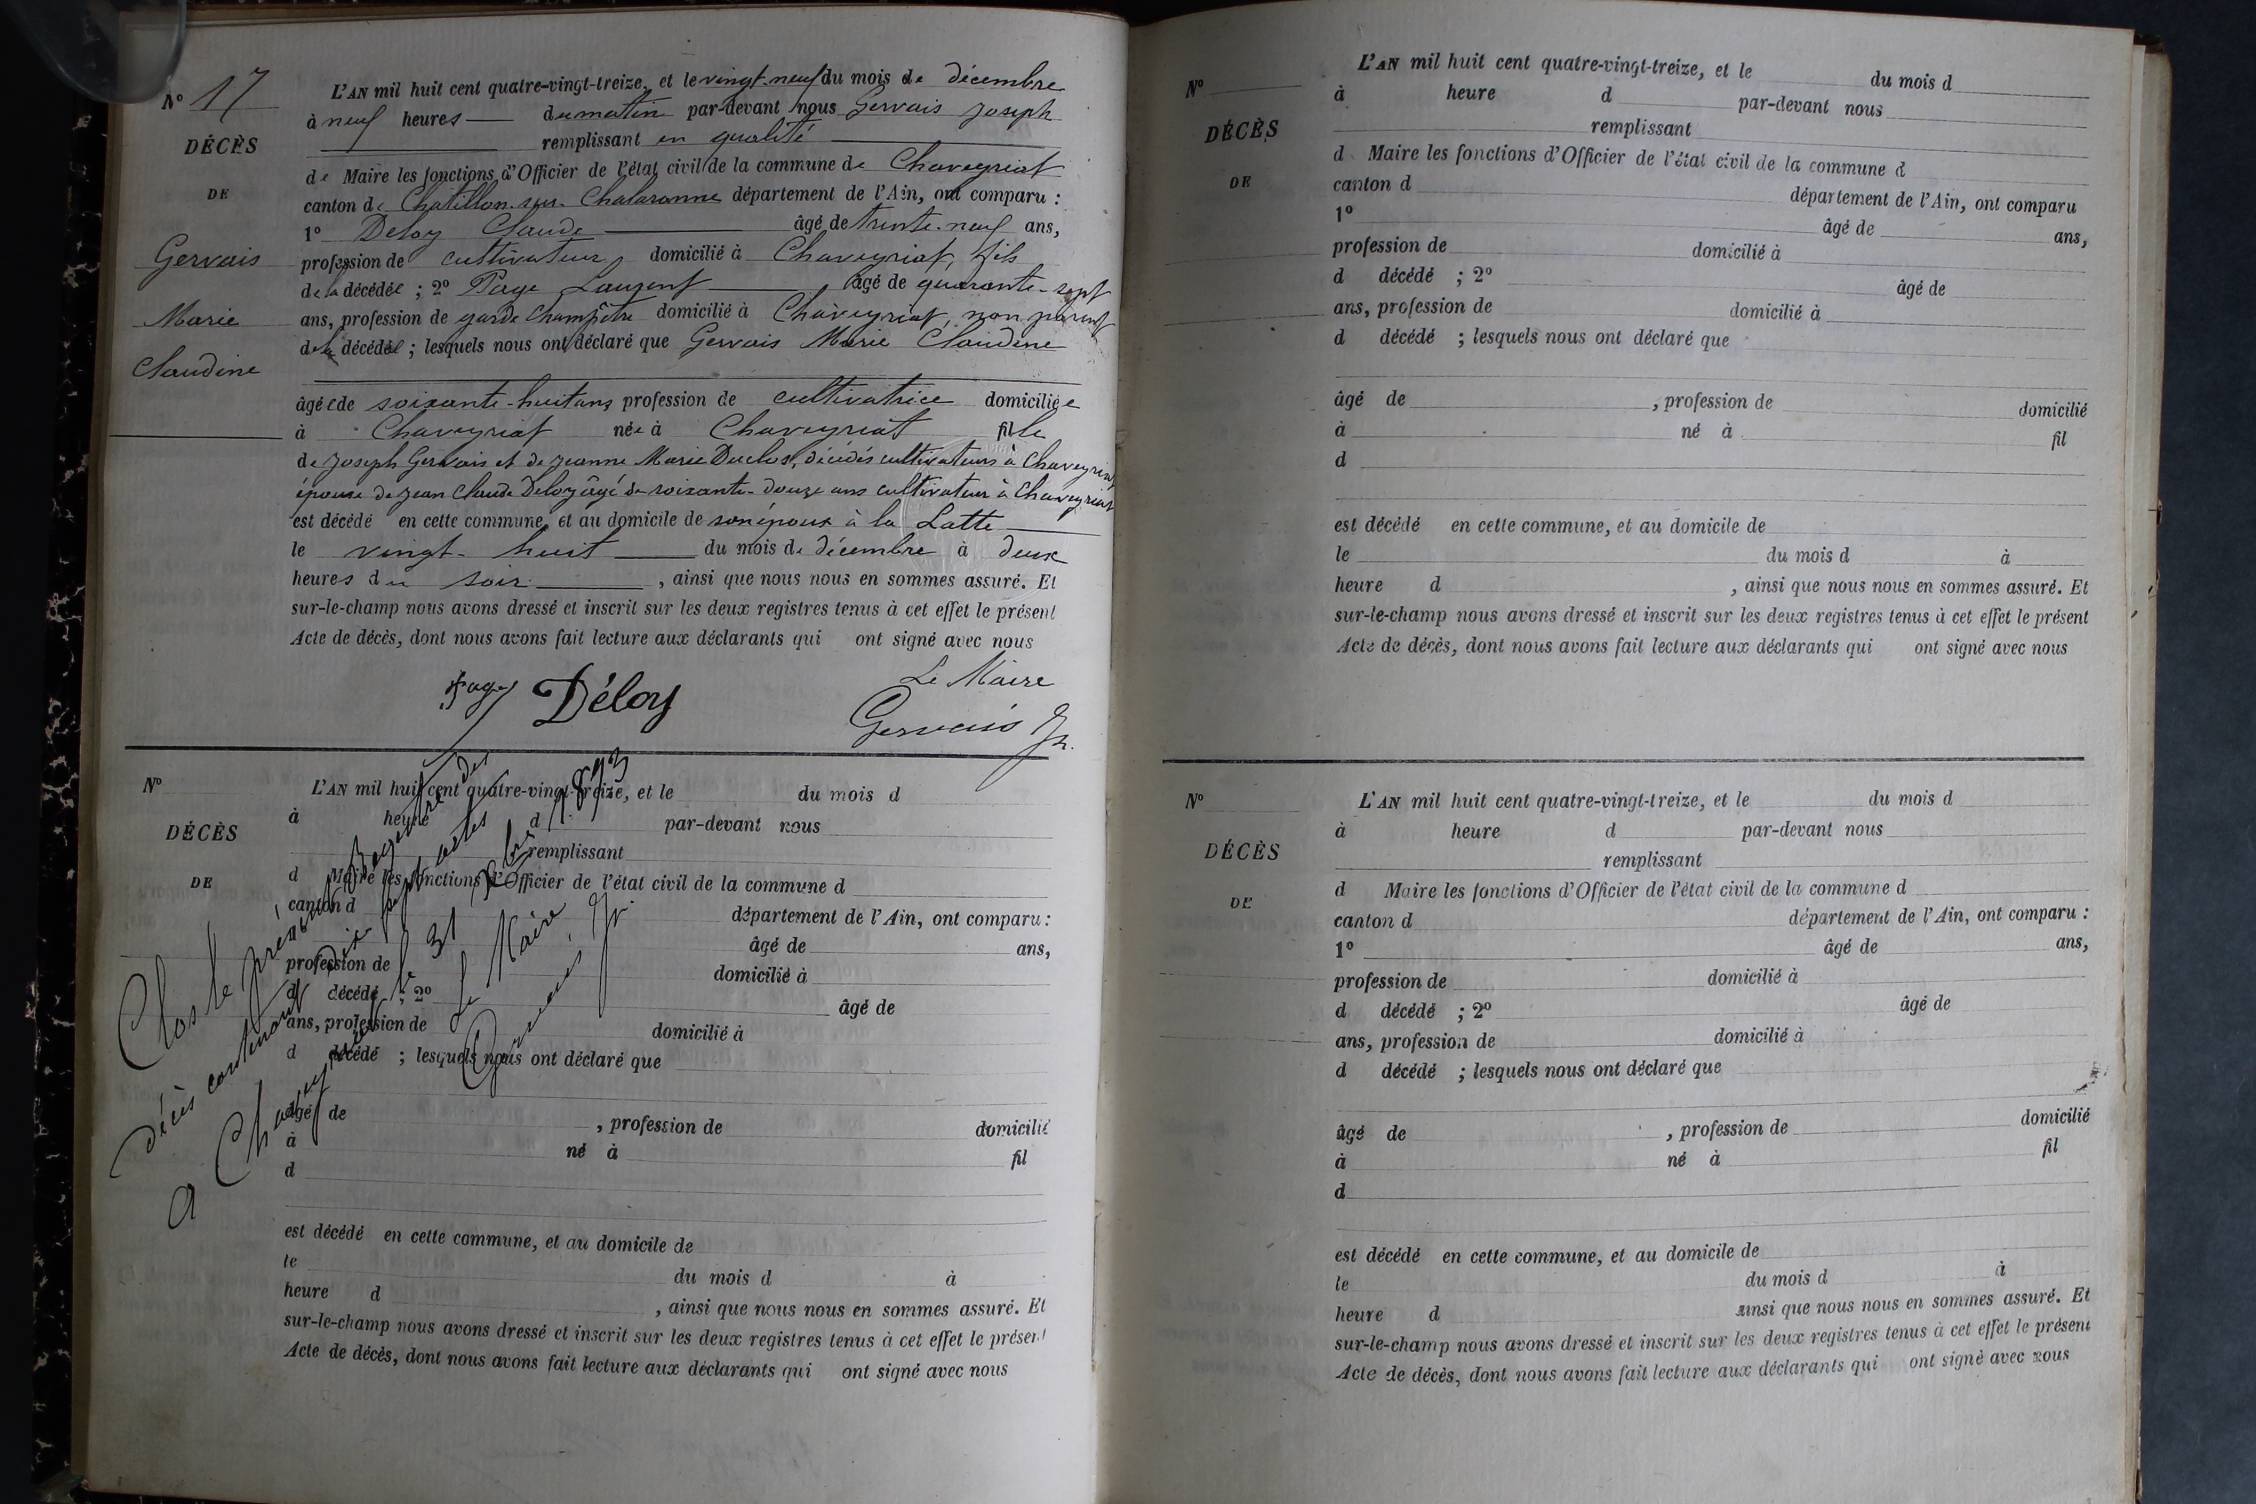 N° 17
DÉCÈS
DE
Gervais
Marie
Claudine
L'AN mil huit cent quatre-vingt-treize, et le vingt-neuf du mois de décembre
à neuf heures du matin par-devant nous Gervais Joseph
remplissant en qualité
de Maire les fonctions d'Officier de l'état civil de la commune de Chaveyriat
canton de Chatillon-sur-Chalaronne département de l'Ain, ont comparu :
1° Deloy Claude âgé de trente-neuf ans,
profession de cultivateur, domicilié à Chaveyriat, fils
de la décédée ; 2° Page Laurent âgé de quarante-sept
ans, profession de garde champêtre domicilié à Chaveyriat, non parent
de la décédée ; lesquels nous ont déclaré que Gervais Marie Claudine
âgée de soixante-huit ans, profession de cultivatrice domiciliée
à Chaveyriat née à Chaveyriat fille
de Joseph Gervais et de Jeanne Marie Duclos, décédés cultivateurs à Chaveyriat
épouse de Jean Claude Deloy âgé de soixante-douze ans cultivateur à Chaveyriat
est décédé en cette commune, et au domicile de son époux à la Latte
le vingt-huit du mois de décembre à deux
heures du soir, ainsi que nous nous en sommes assuré. Et
sur-le-champ nous avons dressé et inscrit sur les deux registres tenus à cet effet le présent
Acte de décès, dont nous avons fait lecture aux déclarants qui ont signé avec nous
Le Maire
Page Déloy Gervais Jh.
N°
DÉCÈS
DE
L'AN mil huit cent quatre-vingt-treize, et le du mois d
à heure d par-devant nous
remplissant
d Maire les fonctions d'Officier de l'état civil de la commune d
canton d département de l'Ain, ont comparu :
âgé de ans,
profession de domicilié à
d décédé ; 2° âgé de
ans, profession de domicilié à
d décédé ; lesquels nous ont déclaré que
âgé de , profession de domicilié
à né à fil
d
est décédé en cette commune, et au domicile de
le du mois d à
heure d , ainsi que nous nous en sommes assuré. Et
sur-le-champ nous avons dressé et inscrit sur les deux registres tenus à cet effet le présent
Acte de décès, dont nous avons fait lecture aux déclarants qui ont signé avec nous
Clos le présent registre des
décès contenant dix-sept actes
A Chaveyriat le 31 Xbre 1893
Le Maire,
Gervais Jh.
N°
DÉCÈS
DE
L'AN mil huit cent quatre-vingt-treize, et le du mois d
à heure d par-devant nous
remplissant
d Maire les fonctions d'Officier de l'état civil de la commune d
canton d département de l'Ain, ont comparu
1° âgé de ans,
profession de domicilié à
d décédé ; 2° âgé de
ans, profession de domicilié à
d décédé ; lesquels nous ont déclaré que
âgé de , profession de domicilié
à né à fil
d
est décédé en cette commune, et au domicile de
le du mois d à
heure d , ainsi que nous nous en sommes assuré. Et
sur-le-champ nous avons dressé et inscrit sur les deux registres tenus à cet effet le présent
Acte de décès, dont nous avons fait lecture aux déclarants qui ont signé avec nous
N°
DÉCÈS
DE
L'AN mil huit cent quatre-vingt-treize, et le du mois d
à heure d par-devant nous
remplissant
d Maire les fonctions d'Officier de l'état civil de la commune d
canton d département de l'Ain, ont comparu :
1° âgé de ans,
profession de domicilié à
d décédé ; 2° âgé de
ans, profession de domicilié à
d décédé ; lesquels nous ont déclaré que
âgé de , profession de domicilié
à né à fil
d
est décédé en cette commune, et au domicile de
le du mois d à
heure d ainsi que nous nous en sommes assuré. Et
sur-le-champ nous avons dressé et inscrit sur les deux registres tenus à cet effet le présent
Acte de décès, dont nous avons fait lecture aux déclarants qui ont signé avec nous